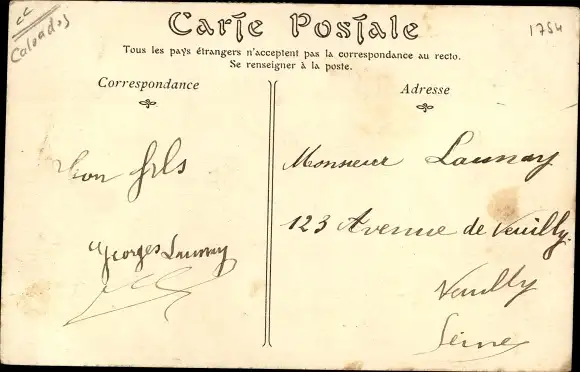 Calvados
1754
Carte Postale
Tous les pays étrangers n'acceptent pas la correspondance au recto.
Se renseigner à la poste.
Correspondance
Adresse
fils
Georges Launay
Monsieur Launay
123 Avenue de Neuilly.
Neuilly
Seine